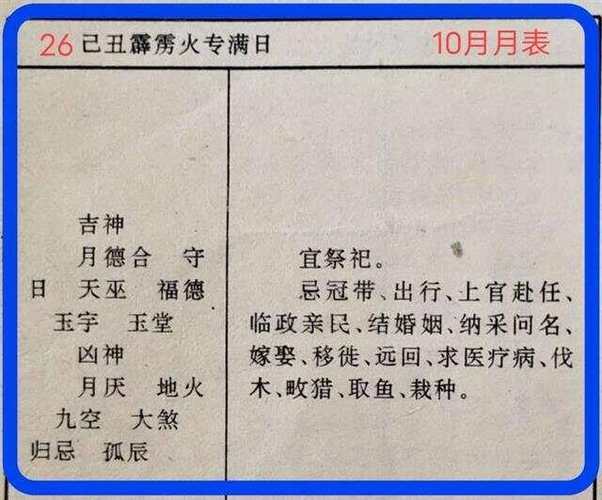 26 己丑霹雳火专满日 10月月表
吉神
月德合 守
日 天巫 福德
玉宇 玉堂
凶神
月厌 地火
九空 大煞
归忌 孤辰
宜祭祀。
忌冠带、出行、上官赴任、
临政亲民、结婚姻、纳采问名、
嫁娶、移徙、远回、求医疗病、伐
木、畋猎、取鱼、栽种。